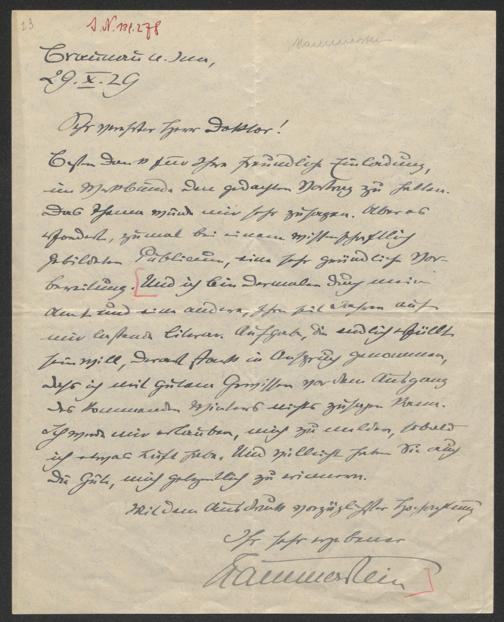 23
J.N. 131.278
Hammerstein
Braunau a. Inn,
29. X. 29
Sehr verehrter Herr Doktor!
Besten Dank für Ihre freundliche Einladung,
im Werkbunde den gedachten Vortrag zu halten.
Das Thema würde mir sehr zusagen. Aber es
erfordert, zumal bei einem wissenschaftlich
gebildeten Publicum, eine sehr gründliche Vor-
bereitung. Und ich bin dermalen durch mein
Amt und eine andere, schon seit Jahren auf
mir lastende literar. Aufgabe, die endlich erfüllt
sein will, derart stark in Anspruch genommen,
dass ich mit gutem Gewissen vor dem Ausgang
des kommenden Winters nichts zusagen kann.
Ich werde mir erlauben, mich zu melden, sobald
ich etwas Luft habe. Und vielleicht haben Sie auch
die Güte, mich gelegentlich zu erinnern.
Mit dem Ausdruck vorzüglichster Hochachtung
Ihr sehr ergebener
Hammerstein